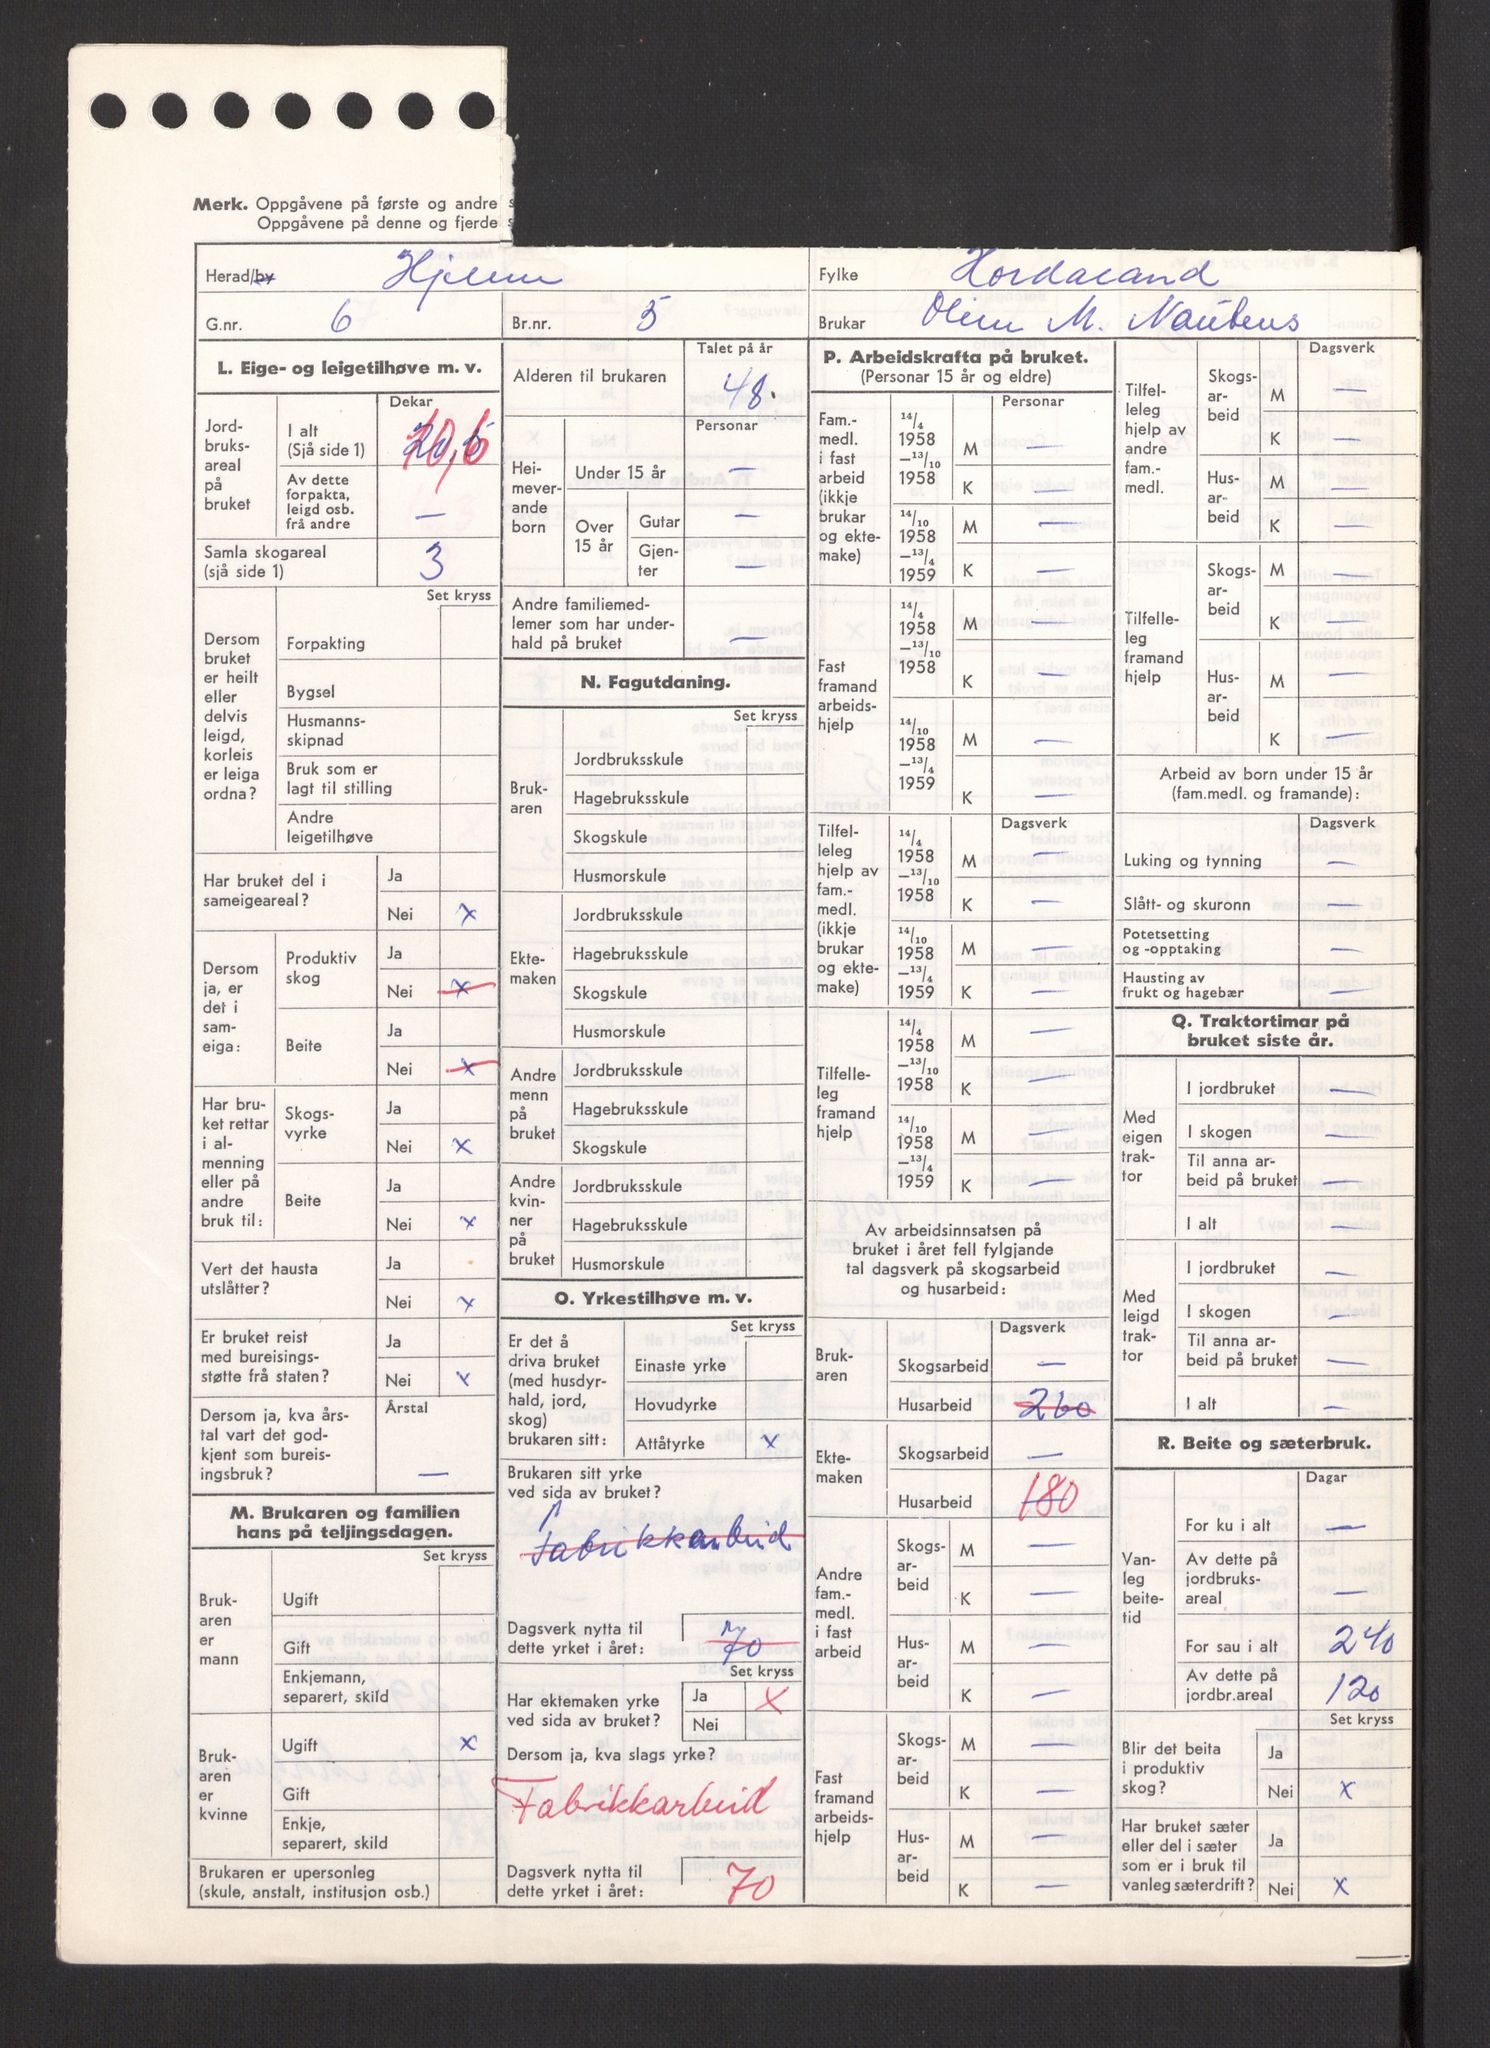 Merk. Oppgåvene på første og andre s
Oppgåvene på denne og fjerde s
Herad/by
Fylke Hordaland
G.nr. 6 Br.nr. 5
Brukar M.
L. Eige- og leigetilhøve m. v.
Dekar
Jord-
bruks-
areal
på
bruket
I alt
(Sjå side 1)
Av dette
forpakta,
leigd osb.
frå andre —
Samla skogareal
(sjå side 1) 3
Set kryss
Dersom
bruket
er heilt
eller
delvis
leigd,
korleis
er leiga
ordna?
Forpakting
Bygsel
Husmanns-
skipnad
Bruk som er
lagt til stilling
Andre
leigetilhøve
Har bruket del i
sameigeareal?
Ja
Nei x
Dersom
ja, er
det i
sam-
eiga:
Produktiv
skog
Ja
Nei x
Beite
Ja
Nei x
Har bru-
ket rettar
i al-
menning
eller på
andre
bruk til:
Skogs-
vyrke
Ja
Nei x
Beite
Ja
Nei x
Vert det hausta
utslåtter?
Ja
Nei x
Er bruket reist
med bureisings-
støtte frå staten?
Ja
Nei x
Dersom ja, kva års-
tal vart det god-
kjent som bureis-
ingsbruk?
Årstal
—
M. Brukaren og familien
hans på teljingsdagen.
Set kryss
Bruk-
aren
er
mann
Ugift
Gift
Enkjemann,
separert, skild
Bruk-
aren
er
kvinne
Ugift x
Gift
Enkje,
separert, skild
Brukaren er upersonleg
(skule, anstalt, institusjon osb.)
Talet på år
Alderen til brukaren 48.
Personar
Hei-
mever-
ande
born
Under 15 år —
Over
15 år
Gutar —
Gjen-
ter —
Andre familiemed-
lemer som har under-
hald på bruket —
N. Fagutdaning.
Set kryss
Bruk-
aren
Jordbruksskule
Hagebruksskule
Skogskule
Husmorskule
Ekte-
maken
Jordbruksskule
Hagebruksskule
Skogskule
Husmorskule
Andre
menn
på
bruket
Jordbruksskule
Hagebruksskule
Skogskule
Andre
kvin-
ner
på
bruket
Jordbruksskule
Hagebruksskule
Husmorskule
O. Yrkestilhøve m. v.
Set kryss
Er det å
driva bruket
(med husdyr-
hald, jord,
skog)
brukaren sitt:
Einaste yrke
Hovudyrke
Attåtyrke x
Brukaren sitt yrke
ved sida av bruket?
Fabrikkarbeid
Dagsverk nytta til
dette yrket i året: 70
Set kryss
Har ektemaken yrke
ved sida av bruket?
Ja x
Nei
Dersom ja, kva slags yrke?
Fabrikkarbeid
Dagsverk nytta til
dette yrket i året: 70
P. Arbeidskrafta på bruket.
(Personar 15 år og eldre)
Personar
Fam.-
medl.
i fast
arbeid
(ikkje
brukar
og ekte-
make)
14/4
1958
—13/10
1958
M —
K —
14/10
1958
—13/4
1959
M —
K —
Fast
framand
arbeids-
hjelp
14/4
1958
—13/10
1958
M —
K —
14/10
1958
—13/4
1959
M —
K —
Dagsverk
Tilfel-
leleg
hjelp av
fam.-
medl.
(ikkje
brukar
og ekte-
make)
14/4
1958
—13/10
1958
M —
K —
14/10
1958
—13/4
1959
M —
K —
Tilfelle-
leg
framand
hjelp
14/4
1958
—13/10
1958
M —
K —
14/10
1958
—13/4
1959
M —
K —
Av arbeidsinnsatsen på
bruket i året fell fylgjande
tal dagsverk på skogsarbeid
og husarbeid:
Dagsverk
Bruk-
aren
Skogsarbeid —
Husarbeid 260
Ekte-
maken
Skogsarbeid —
Husarbeid 180
Andre
fam.-
medl.
i fast
arbeid
Skogs-
ar-
beid
M —
K —
Hus-
ar-
beid
M —
K —
Fast
framand
arbeids-
hjelp
Skogs-
ar-
beid
M —
K —
Hus-
ar-
beid
M —
K —
Dagsverk
Tilfel-
leleg
hjelp av
andre
fam.-
medl.
Skogs-
ar-
beid
M —
K —
Hus-
ar-
beid
M —
K —
Tilfelle-
leg
framand
hjelp
Skogs-
ar-
beid
M —
K —
Hus-
ar-
beid
M —
K —
Arbeid av born under 15 år
(fam.medl. og framande):
Dagsverk
Luking og tynning —
Slått- og skuronn —
Potetsetting
og -opptaking —
Hausting av
frukt og hagebær —
Q. Traktortimar på
bruket siste år.
Med
eigen
trak-
tor
I jordbruket —
I skogen —
Til anna ar-
beid på bruket —
I alt —
Med
leigd
trak-
tor
I jordbruket —
I skogen —
Til anna ar-
beid på bruket —
I alt —
R. Beite og sæterbruk.
Dagar
Van-
leg
beite-
tid
For ku i alt —
Av dette på
jordbruks-
areal —
For sau i alt 240
Av dette på
jordbr.areal 120
Set kryss
Blir det beita
i produktiv
skog?
Ja
Nei x
Har bruket sæter
eller del i sæter
som er i bruk til
vanleg sæterdrift?
Ja
Nei x